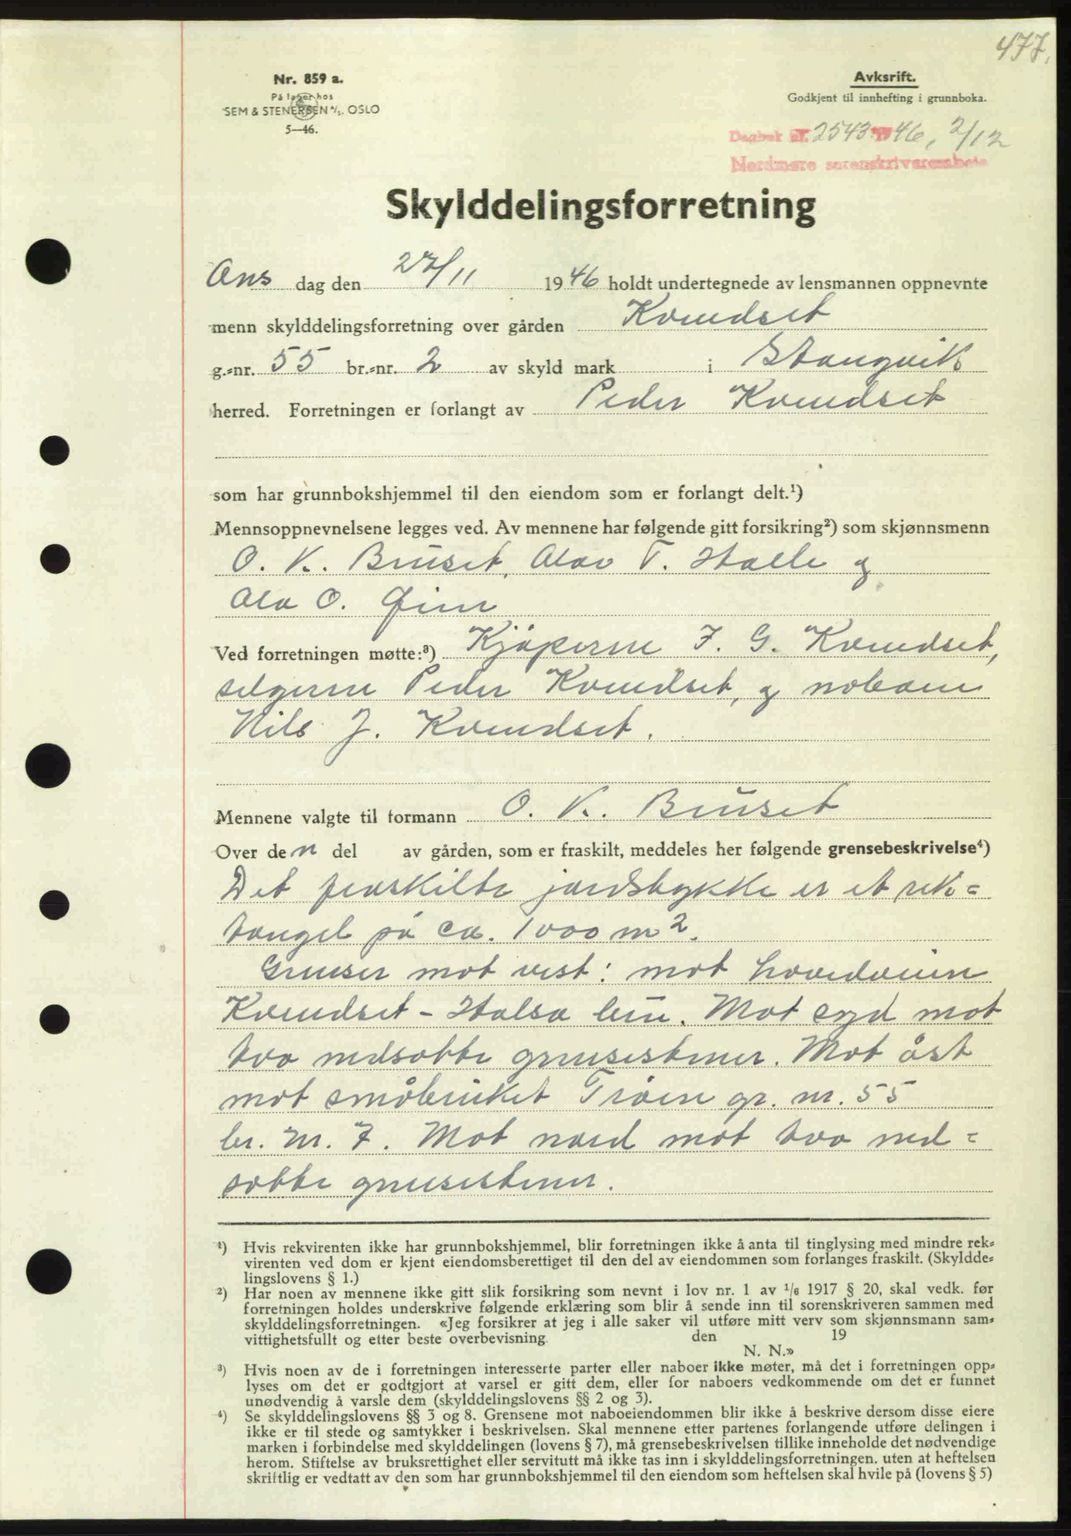 477.
Nr. 859 a.
På lager hos
SEM & STENERSEN A/S. OSLO
5—46.
Avksrift.
Godkjent til innhefting i grunnboka.
Dagbok nr. 2543 1946, 2/12
Nordmøre sorenskriverembete
Skylddelingsforretning
Ons dag den 27/11 1946 holdt undertegnede av lensmannen oppnevnte
menn skylddelingsforretning over gården Kvendset
g.-nr. 55 br.-nr. 2 av skyld mark i Stangvik
herred. Forretningen er forlangt av Peder Kvendset
som har grunnbokshjemmel til den eiendom som er forlangt delt.¹)
Mennsoppnevnelsene legges ved. Av mennene har følgende gitt forsikring²) som skjønnsmenn
O. K. Bruset, Olav T. Halle og
Ola O. Øien
Ved forretningen møtte:³) Kjøperne J. G. Kvendset,
selgerne Peder Kvendset, og naboene
Nils J. Kvendset.
Mennene valgte til formann O. K. Bruset
Over den del av gården, som er fraskilt, meddeles her følgende grensebeskrivelse⁴)
Det fraskilte jordstykke er et rek-
tangel på ca. 1000 m².
Grenser mot vest: mot hovedveien
Kvendset - Halsa br. Mot syd mot
tvo nedsatte grensestener. Mot øst
mot småbruket Trøen gr. nr. 55
br. nr. 7. Mot nord mot tvo ned-
satte grensestener.
¹) Hvis rekvirenten ikke har grunnbokshjemmel, blir forretningen ikke å anta til tinglysing med mindre rek-
virenten ved dom er kjent eiendomsberettiget til den del av eiendommen som forlanges fraskilt. (Skyldde-
lingslovens § 1.)
²) Har noen av mennene ikke gitt slik forsikring som nevnt i lov nr. 1 av 1/6 1917 § 20, skal vedk. før
forretningen holdes underskrive følgende erklæring som blir å sende inn til sorenskriveren sammen med
skylddelingsforretningen. «Jeg forsikrer at jeg i alle saker vil utføre mitt verv som skjønnsmann sam-
vittighetsfullt og etter beste overbevisning den 19
N. N.»
³) Hvis noen av de i forretningen interesserte parter eller naboer ikke møter, må det i forretningen opp-
lyses om det er godtgjort at varsel er gitt dem, eller for naboers vedkommende om det er funnet
unødvendig å varsle dem (skylddelingslovens §§ 2 og 3).
⁴) Se skylddelingslovens §§ 3 og 8. Grensene mot naboeiendommen blir ikke å beskrive dersom disse eiere
ikke er til stede og samtykker i beskrivelsen. Skal mennene etter partenes forlangende utføre delingen i
marken i forbindelse med skylddelingen (lovens § 7), må grensebeskrivelsen tillike inneholde det nødvendige
herom. Stiftelse av bruksrettighet eller servitutt må ikke tas inn i skylddelingsforretningen. uten at heftelsen
skriftlig er vedtatt av den som har grunnbokshjemmel til den eiendom som heftelsen skal hvile på (lovens § 5)